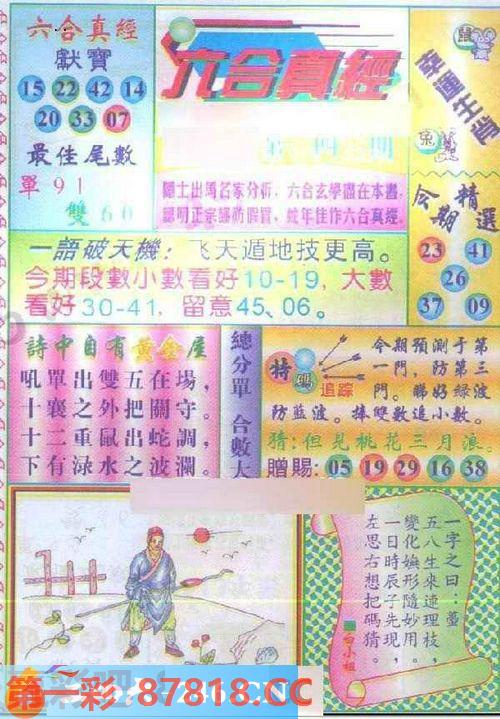 六合真經
獻寶
15 22 42 14
20 33 07
最佳尾數
單91
雙60
六合真經
隱士出馬名家分析，六合玄學盡在本書，
聰明正宗謹防假冐，蛇年佳作六合真經。
幸運生肖
鼠
兔
今期
精選
23 41
26
37 09
一語破天機：飞天遁地技更高。
今期段數小數看好10-19，大數
看好30-41，留意45、06。
詩中自有黄金屋
吼單出雙五在場，
十裹之外把關守。
十二重鼠出蛇調，
下有渌水之波瀾。
總分單 合數大
特碼
追踪
今期預測于第
一門，防第三
門。睇好綠波
防藍波。捧雙數追小數。
猜：但見桃花三月浪。
贈賜：05 19 29 16 38
一字之曰：
五八生來連理枝，
變化嬎形隨妙用。
一日時辰子先現，
左思右想把碼猜。
白小姐
第一彩 87818.CC
246.CN